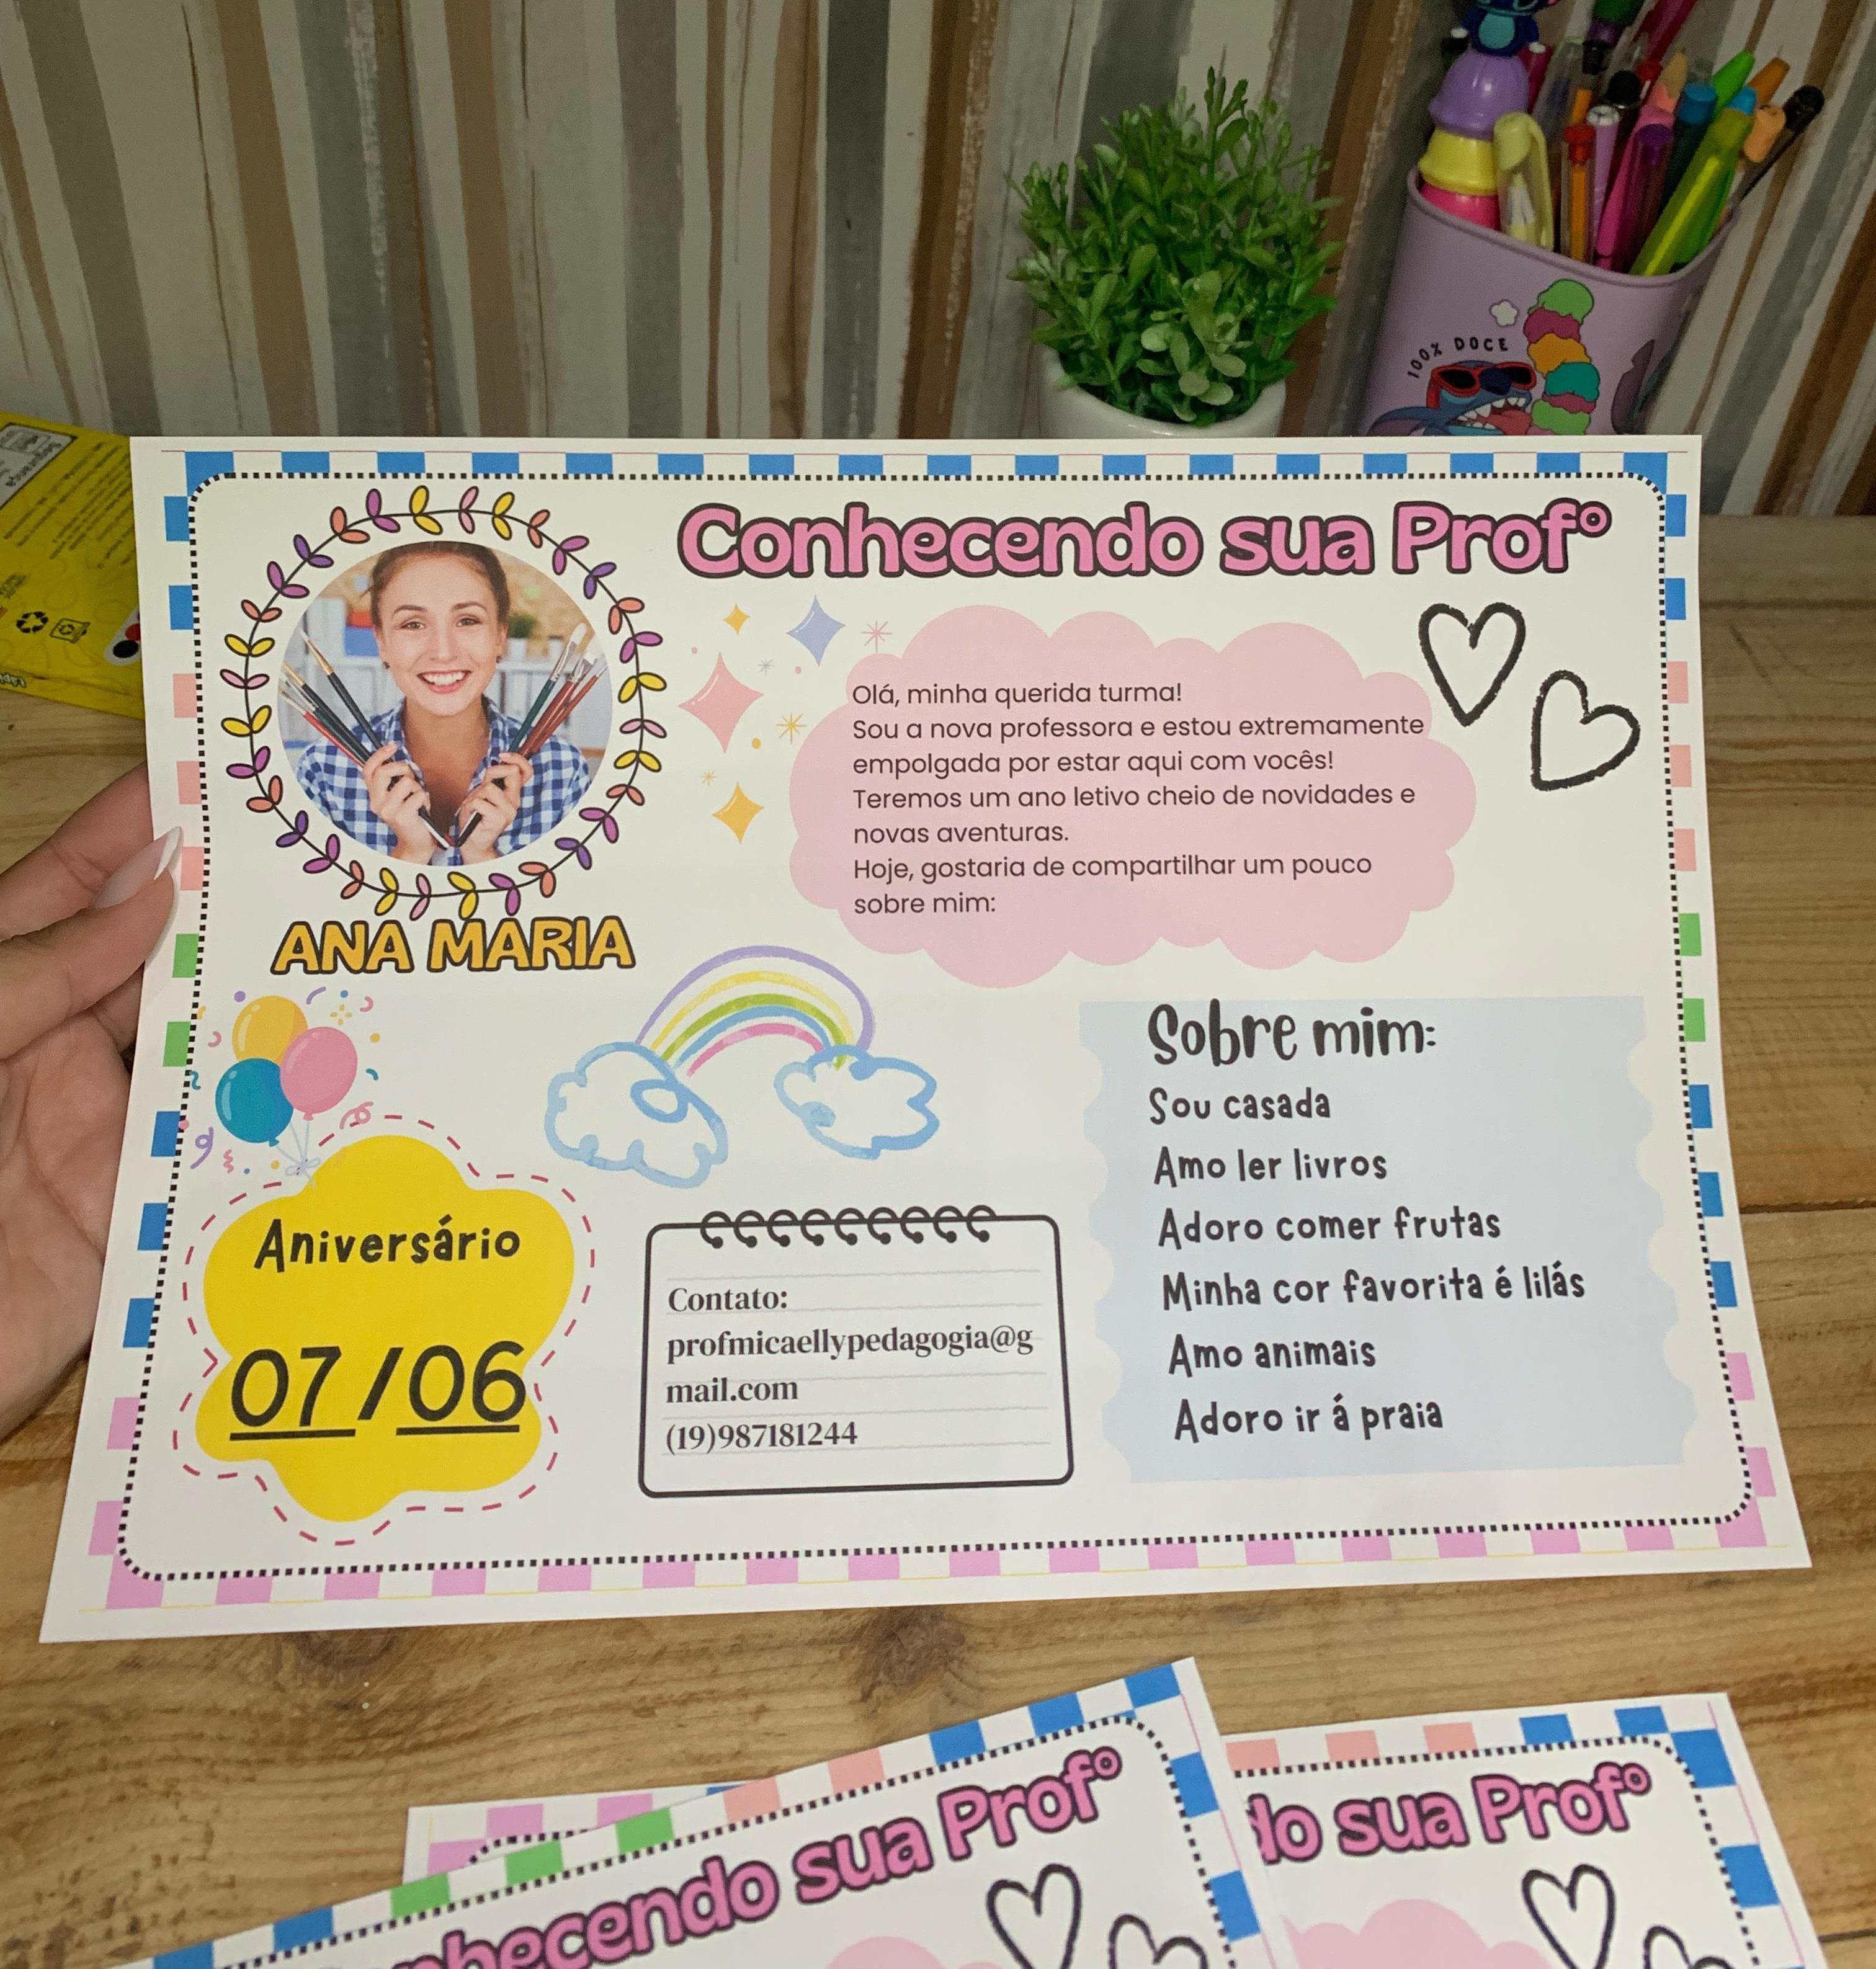 100% DOCE
Conhecendo sua Profº
Olá, minha querida turma!
Sou a nova professora e estou extremamente
empolgada por estar aqui com vocês!
Teremos um ano letivo cheio de novidades e
novas aventuras.
Hoje, gostaria de compartilhar um pouco
sobre mim:
ANA MARIA
Sobre mim:
Sou casada
Amo ler livros
Adoro comer frutas
Minha cor favorita é lilás
Amo animais
Adoro ir á praia
Aniversário
07/06
Contato:
profmicaellypedagogia@g
mail.com
(19)987181244
nhecendo sua Profº
do sua Profº